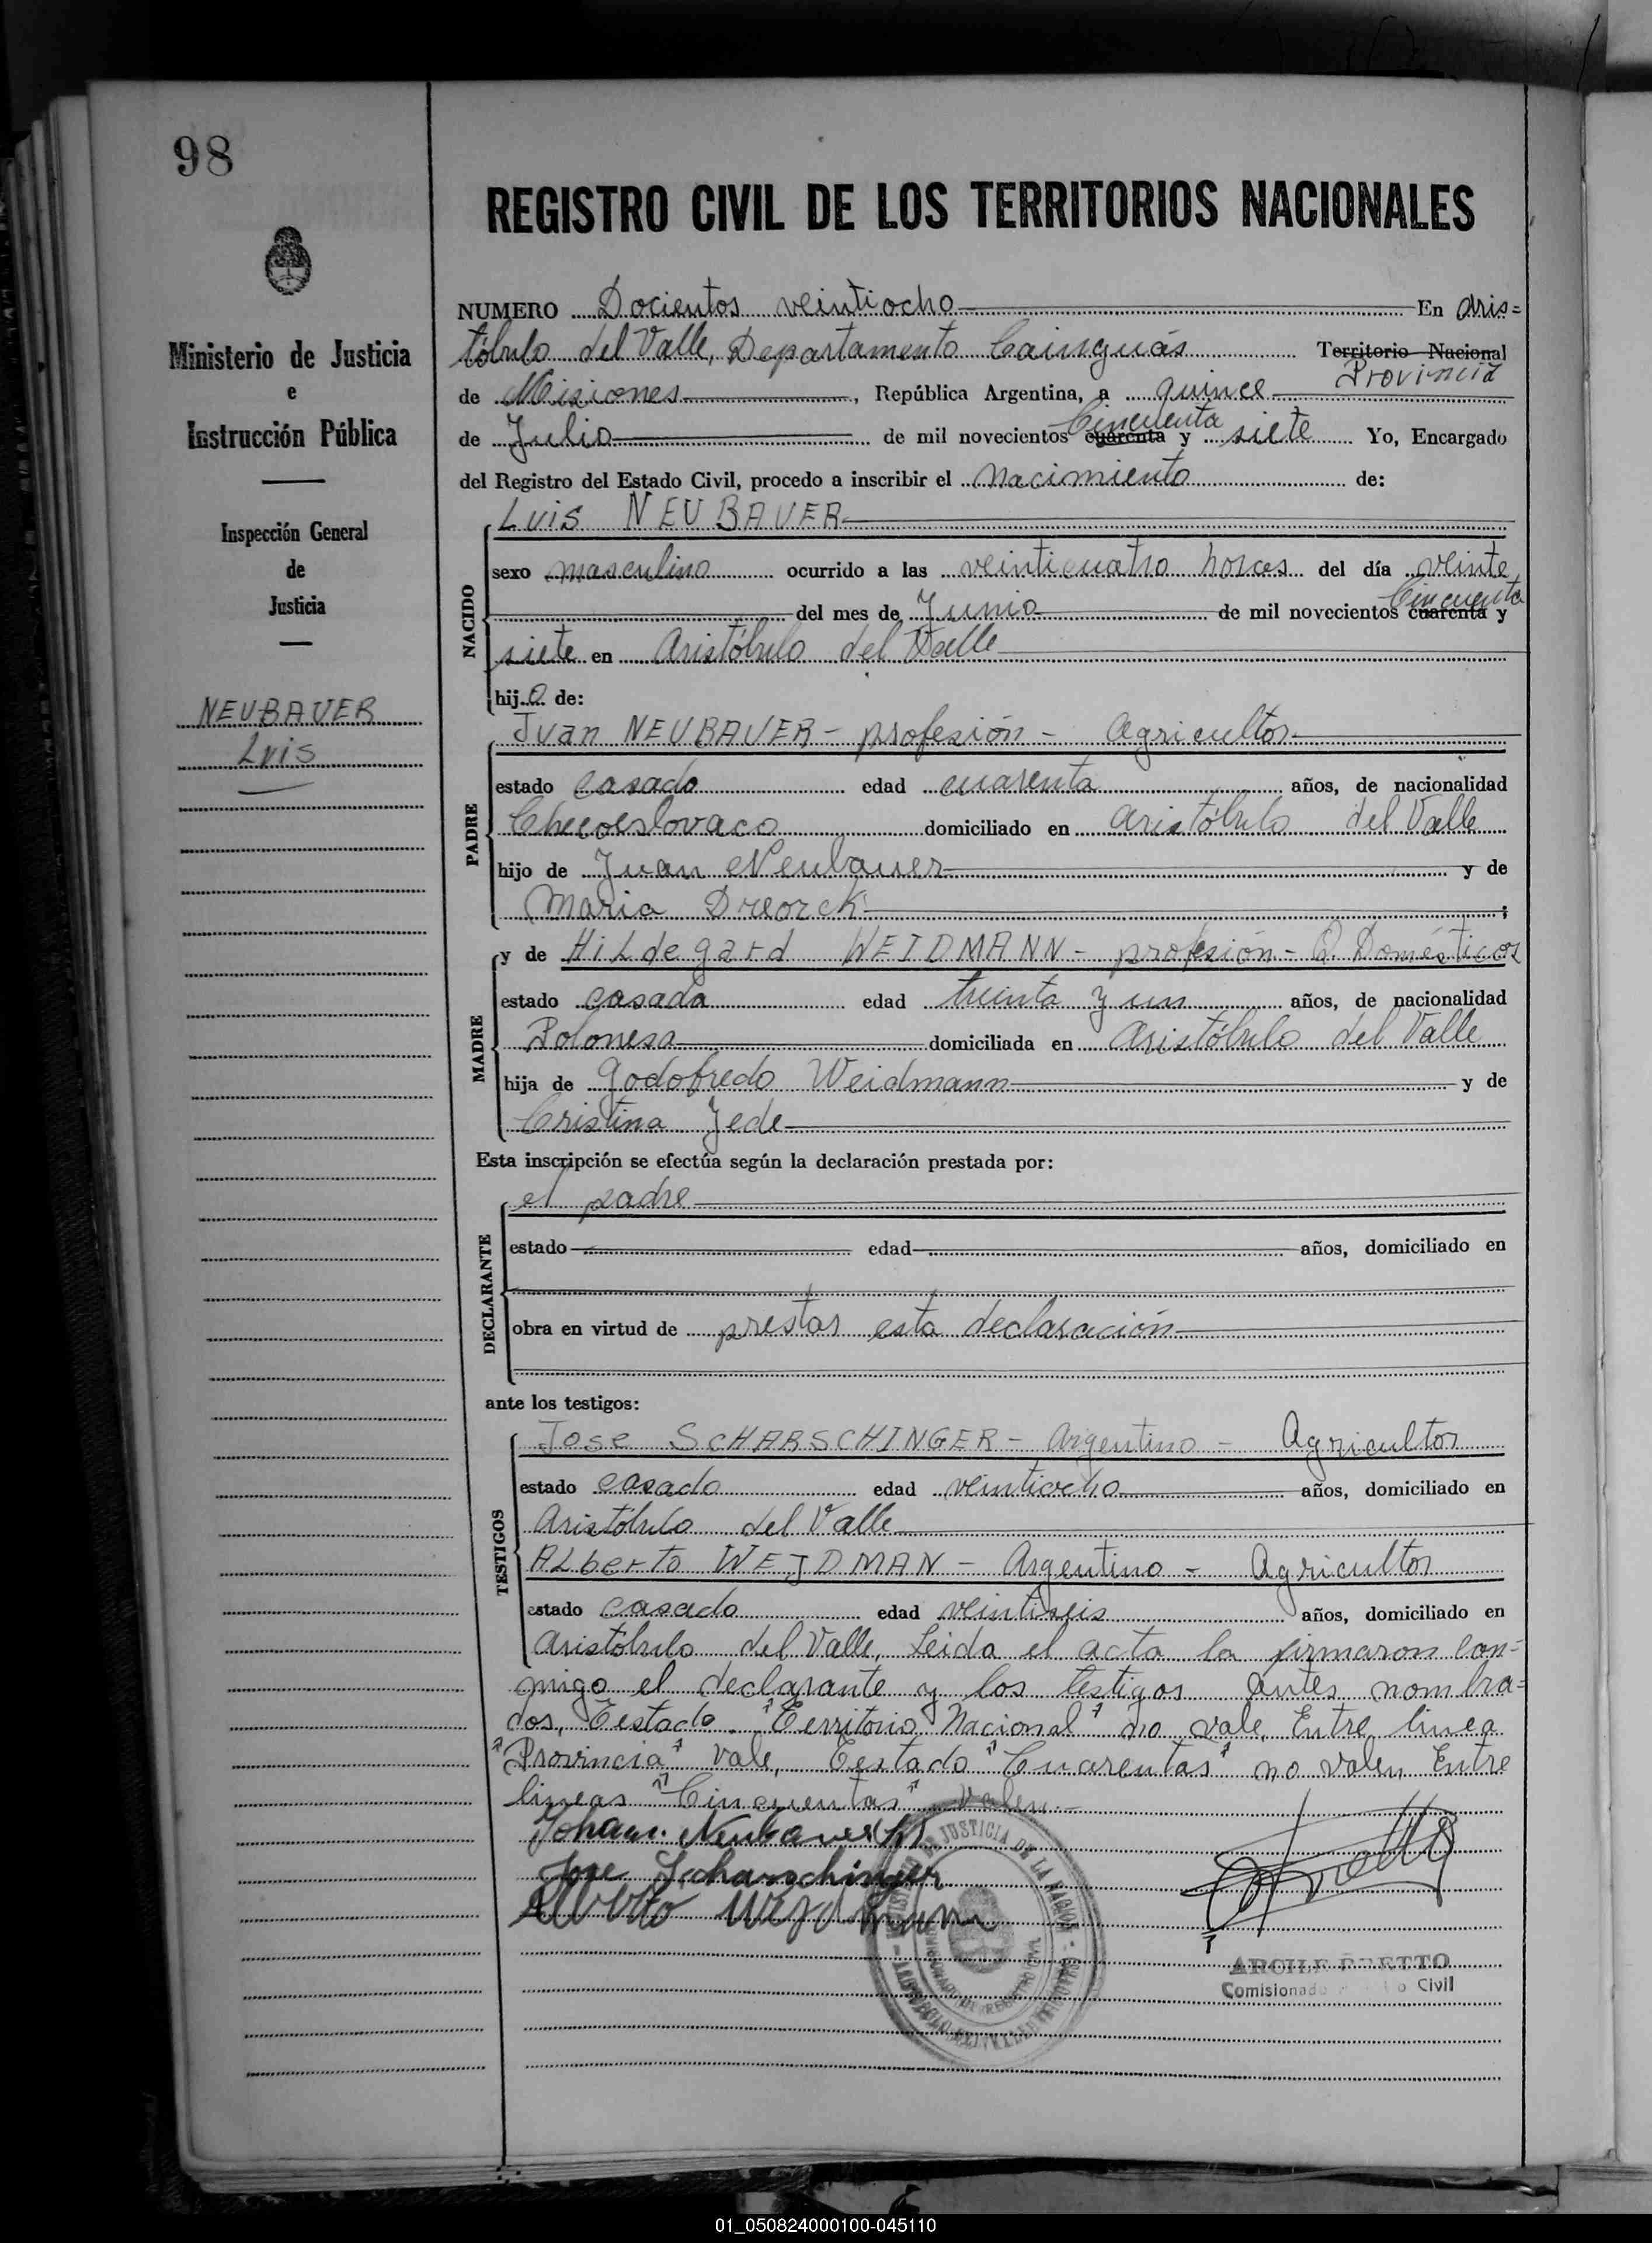 98
REGISTRO CIVIL DE LOS TERRITORIOS NACIONALES
Ministerio de Justicia
e
Instrucción Pública
Inspección General
de
Justicia
NEUBAUER
Luis
NUMERO Docientos veintiocho En Aris=
tóbulo del Valle, Departamento Cainguás Territorio Nacional
Provincia
de Misiones, República Argentina, a quince
Cincuenta
de Julio de mil novecientos cuarenta y siete Yo, Encargado
del Registro del Estado Civil, procedo a inscribir el Nacimiento de:
NACIDO
Luis NEUBAUER
sexo masculino ocurrido a las veinticuatro horas del día veinte
Cincuenta
del mes de Junio de mil novecientos cuarenta y
siete en Aristóbulo del Valle
hijo de:
PADRE
Juan NEUBAUER - profesión - Agricultor
estado casado edad cuarenta años, de nacionalidad
Checoeslovaco domiciliado en Aristóbulo del Valle
hijo de Juan Neubauer y de
Maria Dreorck;
MADRE
y de Hildegard WEIDMANN - profesión - Q. Domésticos
estado casada edad treinta y un años, de nacionalidad
Polonesa domiciliada en Aristóbulo del Valle
hija de Godofredo Weidmann y de
Cristina Jede
Esta inscripción se efectúa según la declaración prestada por:
DECLARANTE
el padre
estado edad años, domiciliado en
obra en virtud de prestar esta declaración
ante los testigos:
TESTIGOS
Jose SCHARSCHINGER - Argentino - Agricultor
estado casado edad veintiocho años, domiciliado en
Aristóbulo del Valle
Alberto WEJDMAN - Argentino - Agricultor
estado casado edad veintiseis años, domiciliado en
Aristóbulo del Valle, Leida el acta la firmaron con=
migo el declarante y los testigos antes nombra=
dos, Testado "Territorio Nacional" no vale, Entre linea
"Provincia" vale, Testado "Cuarentas" no valen, Entre
lineas "Cincuentas" Valen.-
Johann Neubauer
Jose Scharschinger
Alberto Wejdmann
JUSTICIA DE LA NACION
Comisionado Civil
01_050824000100-045110